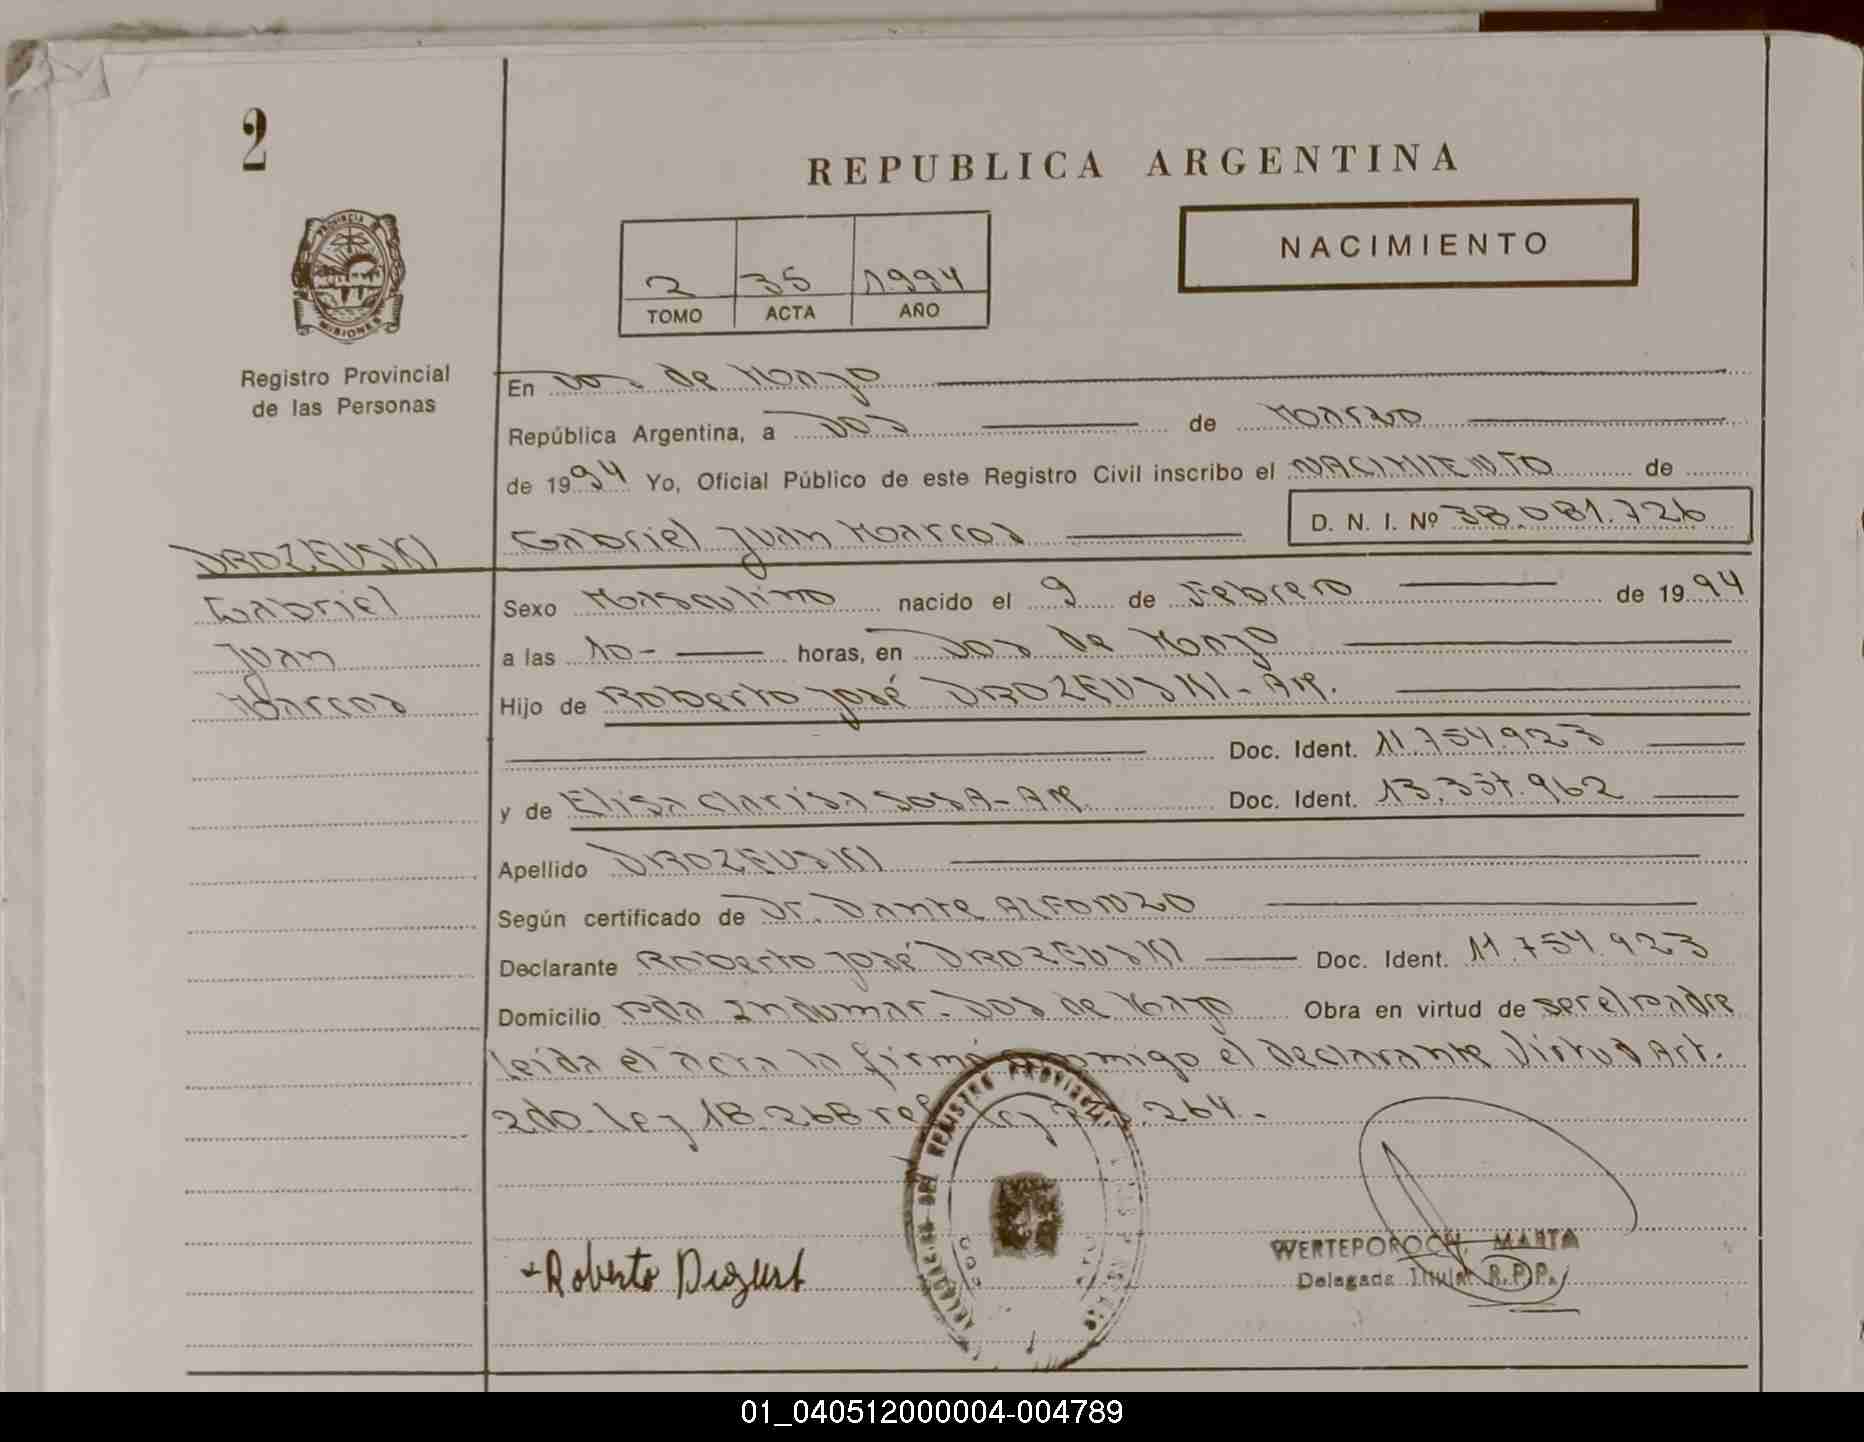 2
REPUBLICA ARGENTINA
PROVINCIA
MISIONES
2 35 1994
TOMO ACTA AÑO
NACIMIENTO
Registro Provincial
de las Personas
En Dos de Mayo
República Argentina, a Dos de Marzo
de 1994 Yo, Oficial Público de este Registro Civil inscribo el NACIMIENTO de
Gabriel Juan Marcos D. N. I. Nº 38.081.726
DROZEUSKI
Gabriel
Juan
Marcos
Sexo Masculino nacido el 9 de Febrero de 1994
a las 10- horas, en Dos de Mayo
Hijo de Roberto José DROZEUSKI - Ar.
Doc. Ident. 11.754.923
y de Elisa Clarisa SOSA - Ar. Doc. Ident. 13.337.962
Apellido DROZEUSKI
Según certificado de Dr. Dante ALFONZO
Declarante Roberto José DROZEUSKI Doc. Ident. 11.754.923
Domicilio Indumar - Dos de Mayo Obra en virtud de ser el padre
leída el acta la firma conmigo el declarante Virtud Art.
2do. ley 18.268 ref ley .264.
REGISTRO PROVINCIAL
*Roberto
WERTEPOROCH, MARTA
Delegada Titular R.P.P.
01_040512000004-004789